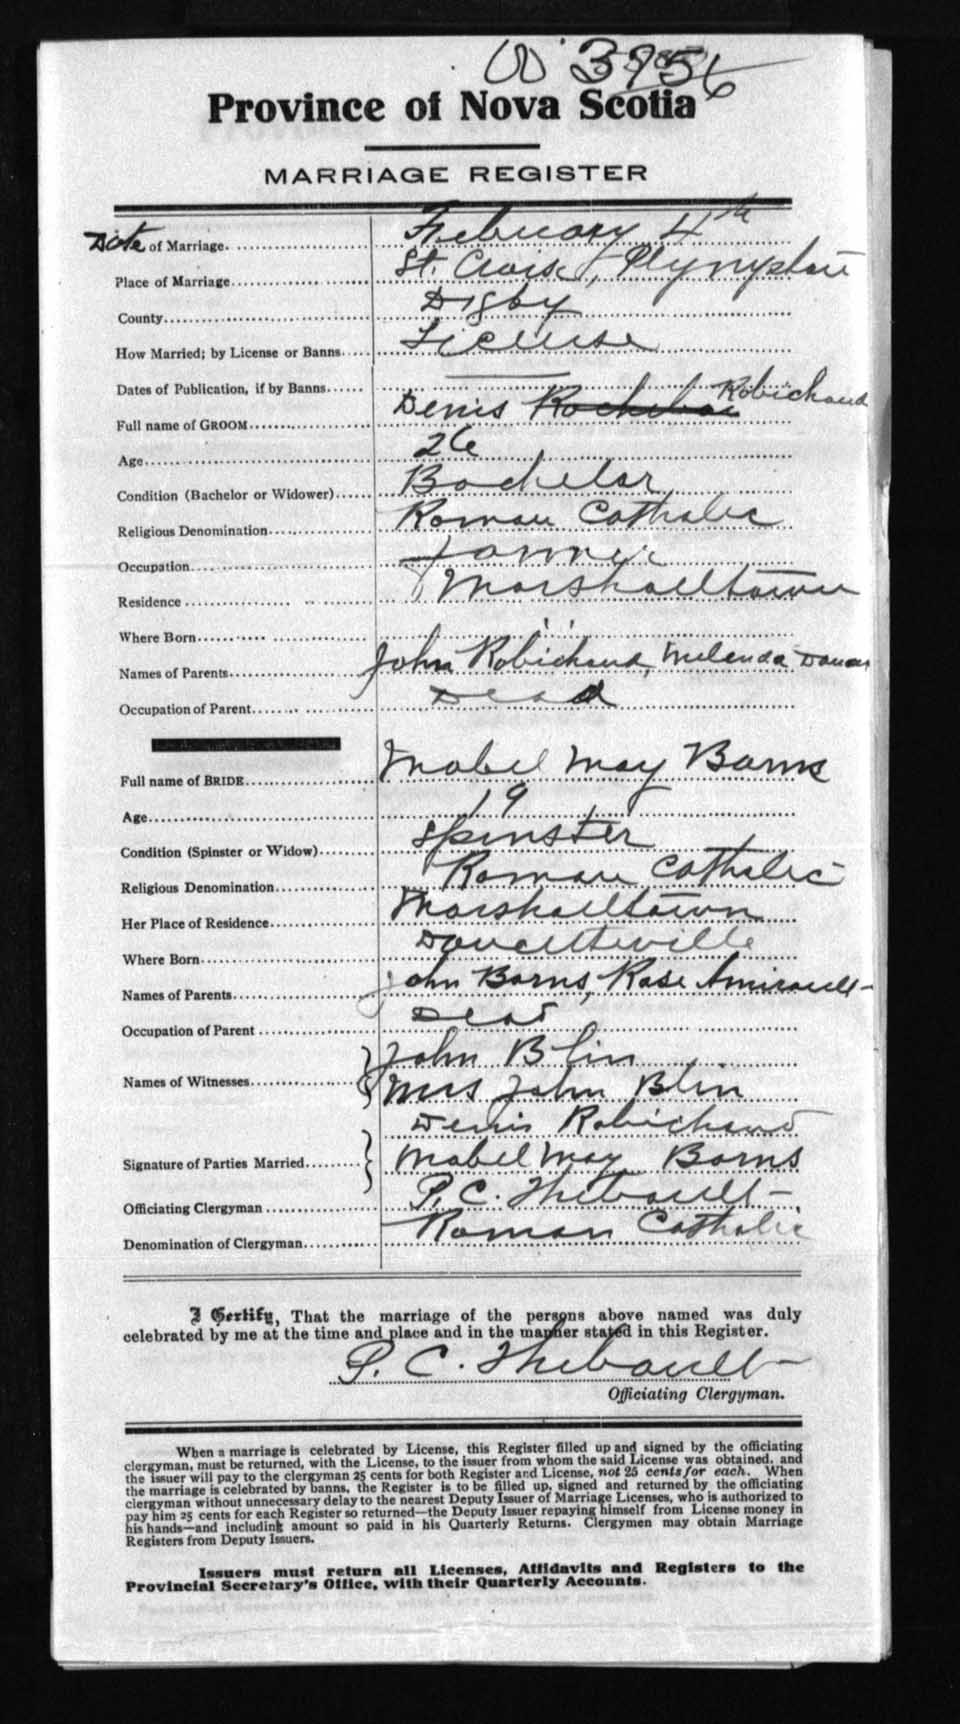 3956
Province of Nova Scotia
MARRIAGE REGISTER
Date of Marriage. February 4th
Place of Marriage St. Croix, Plympton
County Digby
How Married; by License or Banns License
Dates of Publication, if by Banns
Full name of GROOM Denis Robichaud
Age 26
Condition (Bachelor or Widower) Bachelor
Religious Denomination Roman Catholic
Occupation farmer
Residence Marshalltown
Where Born " "
Names of Parents John Robichaud, Melenda
Occupation of Parent Dead
Full name of BRIDE Mabel May Barns
Age 19
Condition (Spinster or Widow) Spinster
Religious Denomination Roman Catholic
Her Place of Residence Marshalltown
Where Born Doucetteville
Names of Parents John Barns, Rose Amirault
Occupation of Parent Dead
John Blin
Names of Witnesses Mrs John Blin
Denis Robichaud
Signature of Parties Married Mabel May Barns
Officiating Clergyman P. C. Thibault
Denomination of Clergyman Roman Catholic
I Certify, That the marriage of the persons above named was duly
celebrated by me at the time and place and in the manner stated in this Register.
P. C. Thibault
Officiating Clergyman.
When a marriage is celebrated by License, this Register filled up and signed by the officiating
clergyman, must be returned, with the License, to the issuer from whom the said License was obtained, and
the issuer will pay to the clergyman 25 cents for both Register and License, not 25 cents for each. When
the marriage is celebrated by banns, the Register is to be filled up, signed and returned by the officiating
clergyman without unnecessary delay to the nearest Deputy Issuer of Marriage Licenses, who is authorized to
pay him 25 cents for each Register so returned—the Deputy Issuer repaying himself from License money in
his hands—and including amount so paid in his Quarterly Returns. Clergymen may obtain Marriage
Registers from Deputy Issuers.
Issuers must return all Licenses, Affidavits and Registers to the
Provincial Secretary's Office, with their Quarterly Accounts.